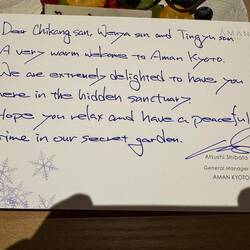 AMAN
Dear Chikang san, Wenya san and Tingyu san
A very warm welcome to Aman Kyoto.
We are extremely delighted to have you
here in the hidden sanctuary.
Hope you relax and have a peaceful
time in our secret garden.
Atsushi Shibata
General Manager
AMAN KYOTO